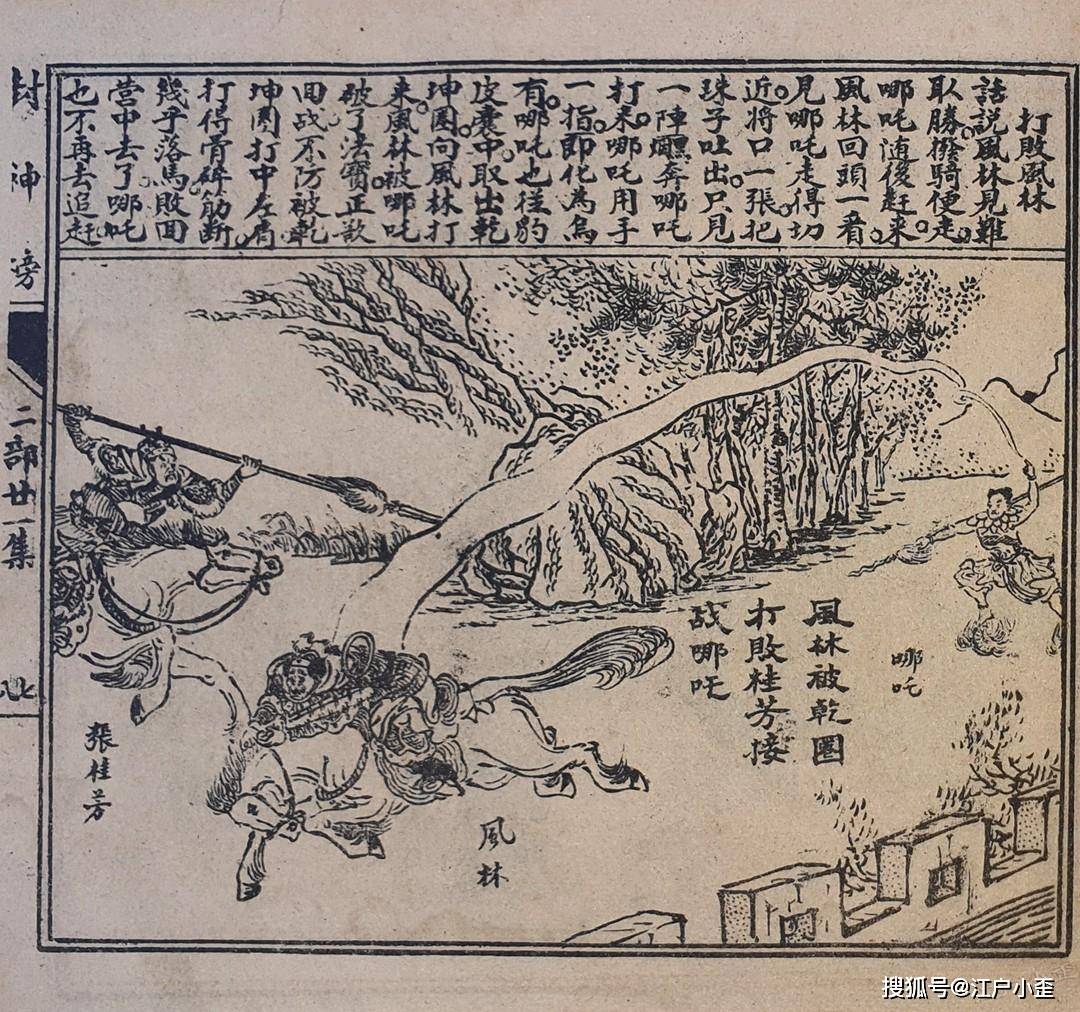 打敗風林
話說風林見難
取勝。撥騎便走。
哪吒随後赶来。
風林回頭一看。
見哪吒走得切
近。將口一張。把
珠子吐出。只見
一陣奔哪吒
打来。哪吒用手
一指。即化為烏
有。哪吒也往豹
皮囊中取出乾
坤圈。向風林打
来。風林被哪吒
破了法寶。正欲
回战。不防被乾
坤圈打中左肩
打得骨碎筋斷。
幾乎落馬。敗回
營中去了。哪吒
也不再去追赶
哪吒
風林被乾圈
打敗桂芳接
战哪吒
風林
張桂芳
封神榜
二部廿一集
搜狐号@江户小歪